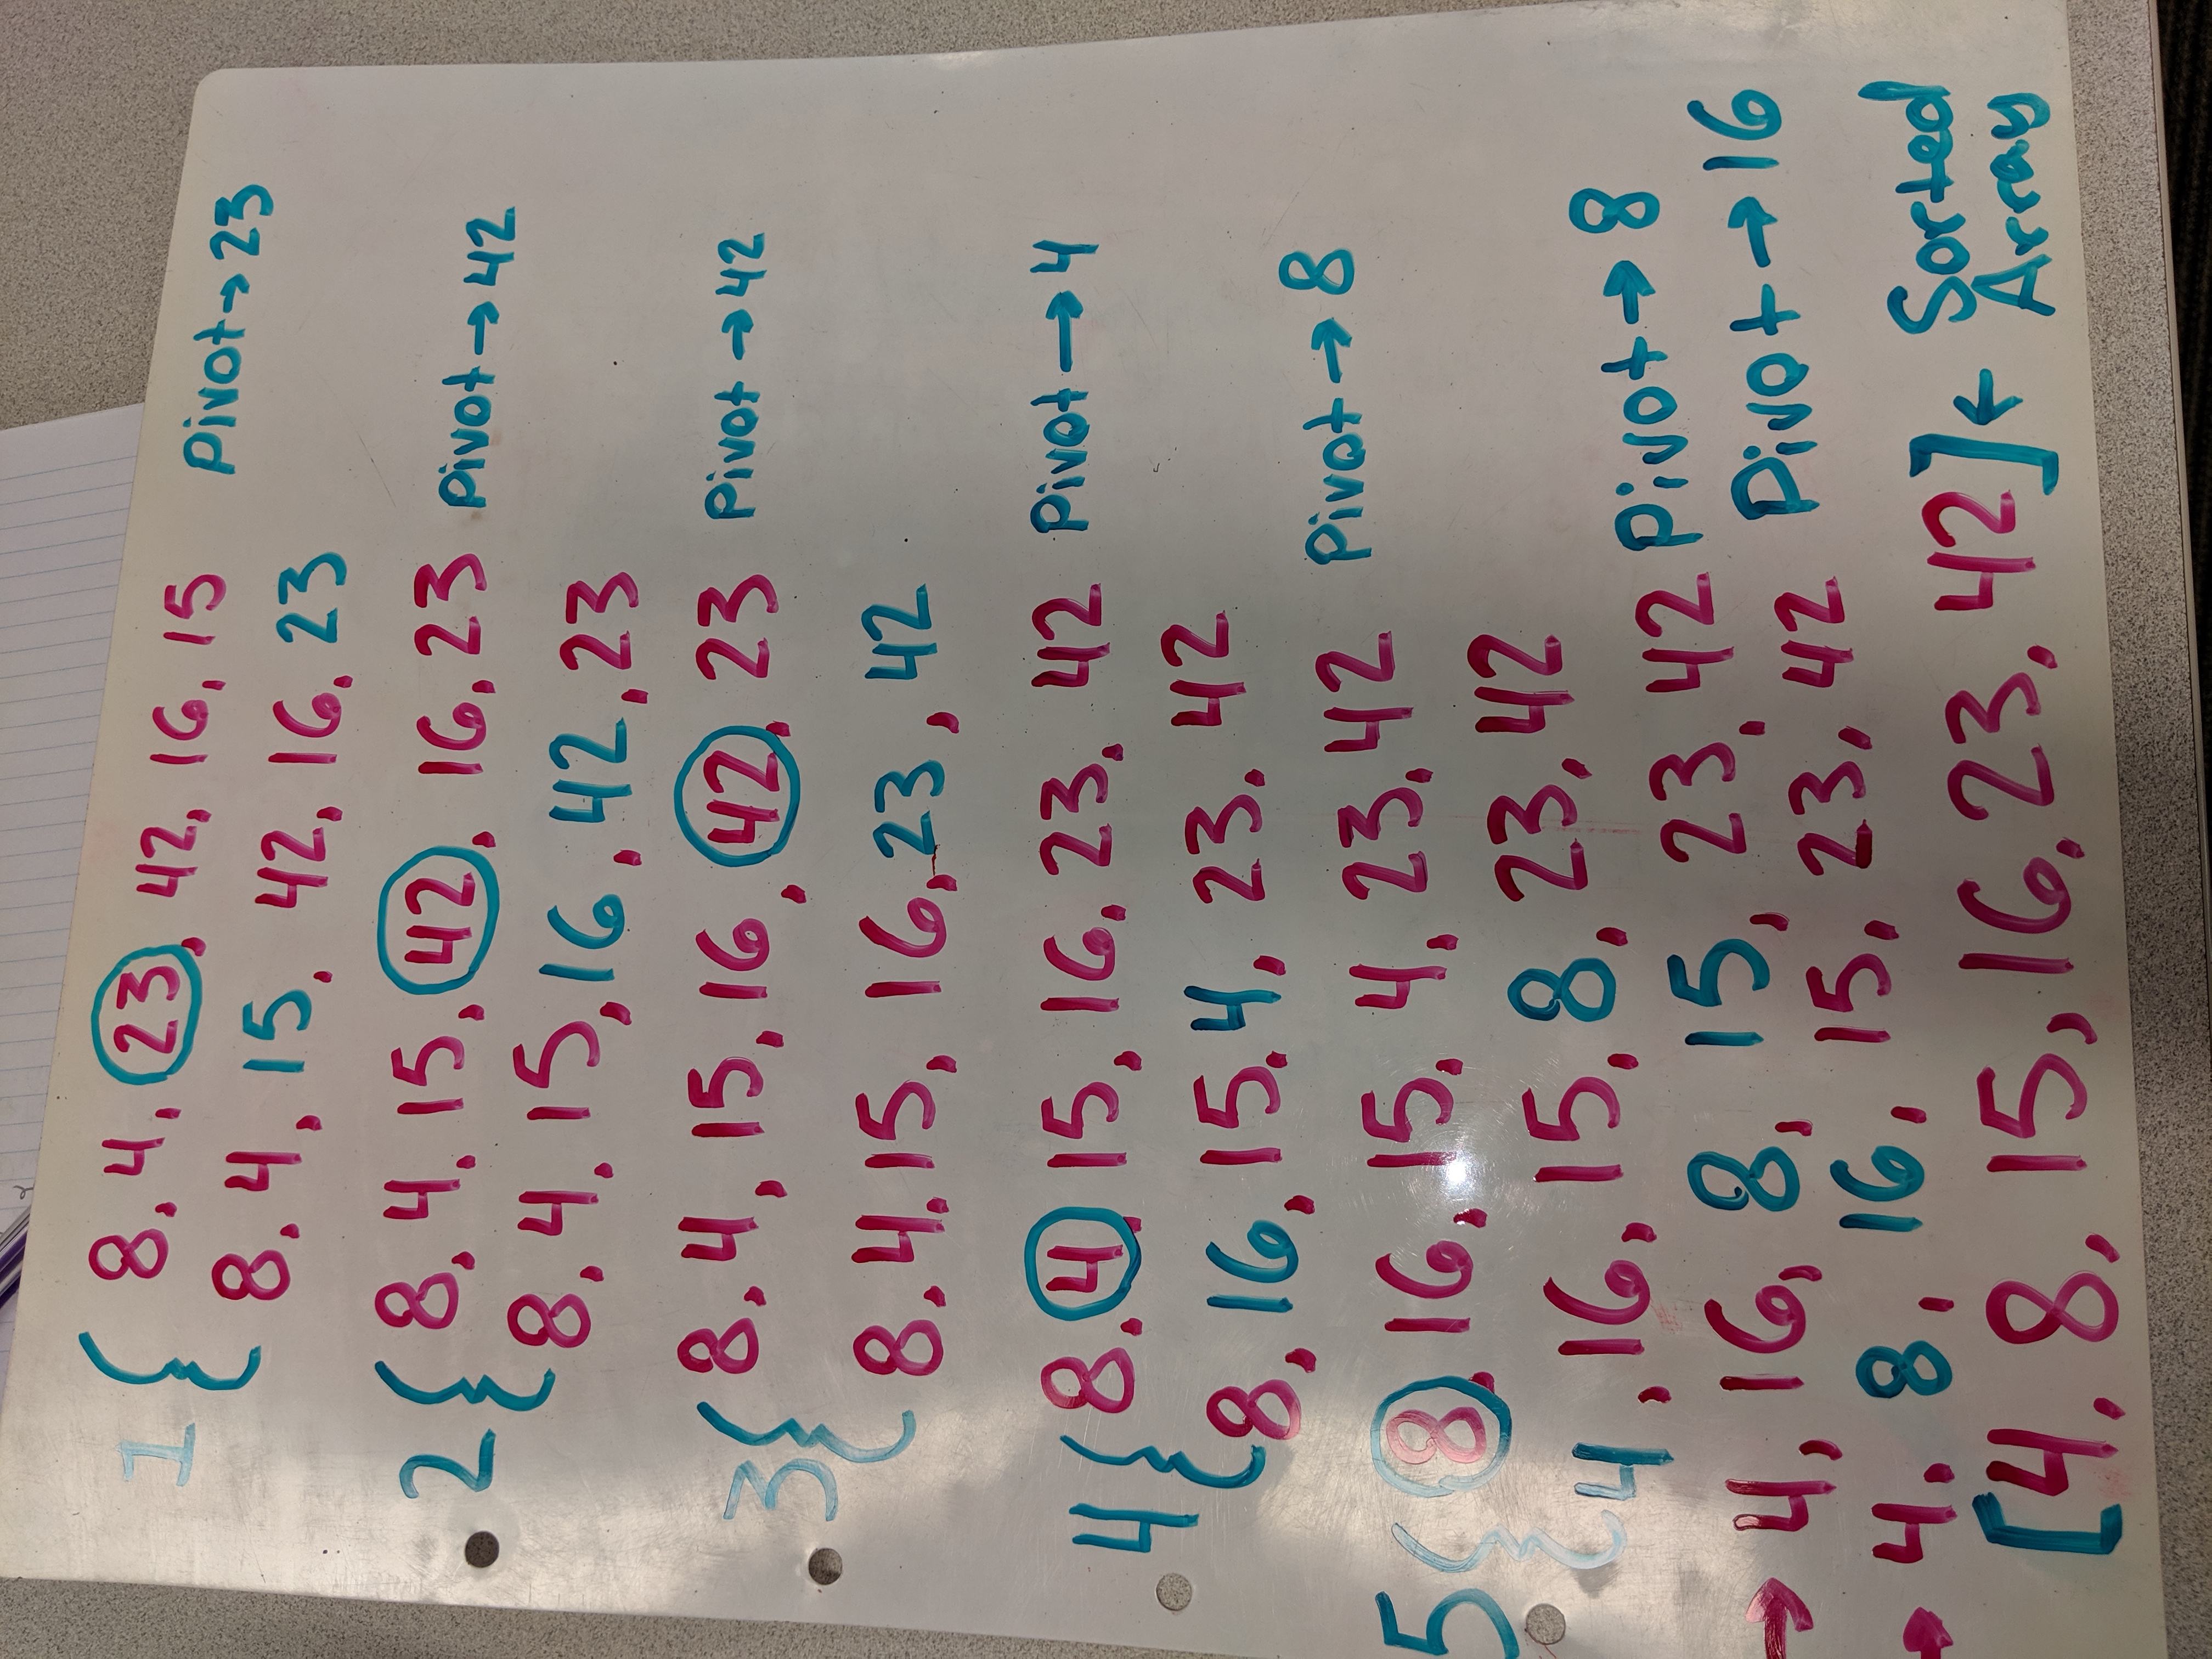 1 { 8, 4, 23, 42, 16, 15 Pivot → 23
8, 4, 15, 42, 16, 23
2 { 8, 4, 15, 42, 16, 23 Pivot → 42
8, 4, 15, 16, 42, 23
3 { 8, 4, 15, 16, 42, 23 Pivot → 42
8, 4, 15, 16, 23, 42
4 { 8, 4, 15, 16, 23, 42 Pivot → 4
8, 16, 15, 4, 23, 42
5 { 8, 16, 15, 4, 23, 42 Pivot → 8
4, 16, 15, 8, 23, 42
→ 4, 16, 8, 15, 23, 42 Pivot → 8
→ 4, 8, 16, 15, 23, 42 Pivot → 16
[4, 8, 15, 16, 23, 42] ← Sorted
Array